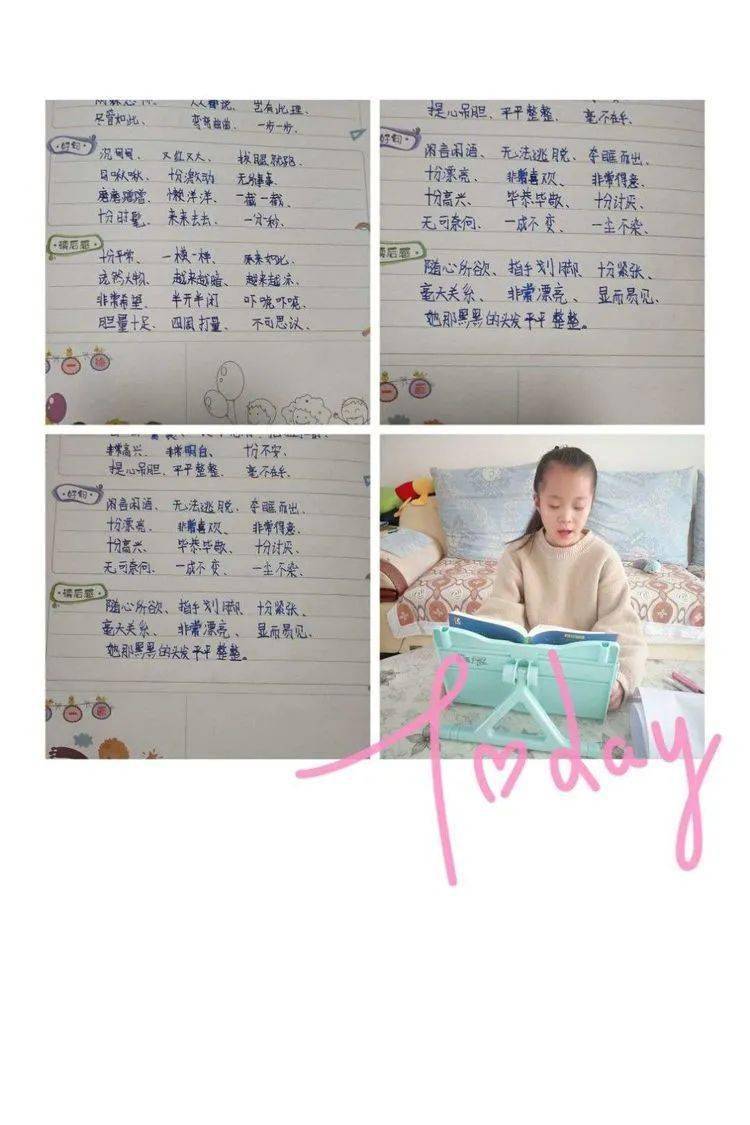 人人都说、 岂有此理、
尽管如此、 弯弯曲曲、 一步一步、
好句
沉甸甸、 又红又大、 拔腿就跑、
十分激动
磨磨蹭蹭、 懒洋洋、 一截一截、
十分时髦、 来来去去、 一分一秒、
读后感
十分平常、 一模一样、 原来如此、
庞然大物、 越来越暗、 越来越凉、
非常希望、 半开半闭 吓唬吓唬、
胆量十足、 四周打量、 不可思议、
提心吊胆、 平平整整、 毫不在乎、
好句
无法逃脱、 夺眶而出、
十分漂亮、 非常喜欢、 非常得意、
十分高兴、 毕恭毕敬、 十分讨厌、
无可奈何、 一成不变、 一尘不染、
读后感
随心所欲、 指手划脚、 十分紧张、
毫无关系、 非常漂亮、 显而易见、
她那黑黑的头发平平整整。
非常高兴、 非常明白、 十分不安、
提心吊胆、 平平整整、 毫不在乎、
好句
无法逃脱、 夺眶而出、
十分漂亮、 非常喜欢、 非常得意、
十分高兴、 毕恭毕敬、 十分讨厌、
无可奈何、 一成不变、 一尘不染、
读后感
随心所欲、 指手划脚、 十分紧张、
毫无关系、 非常漂亮、 显而易见、
她那黑黑的头发平平整整。
Today